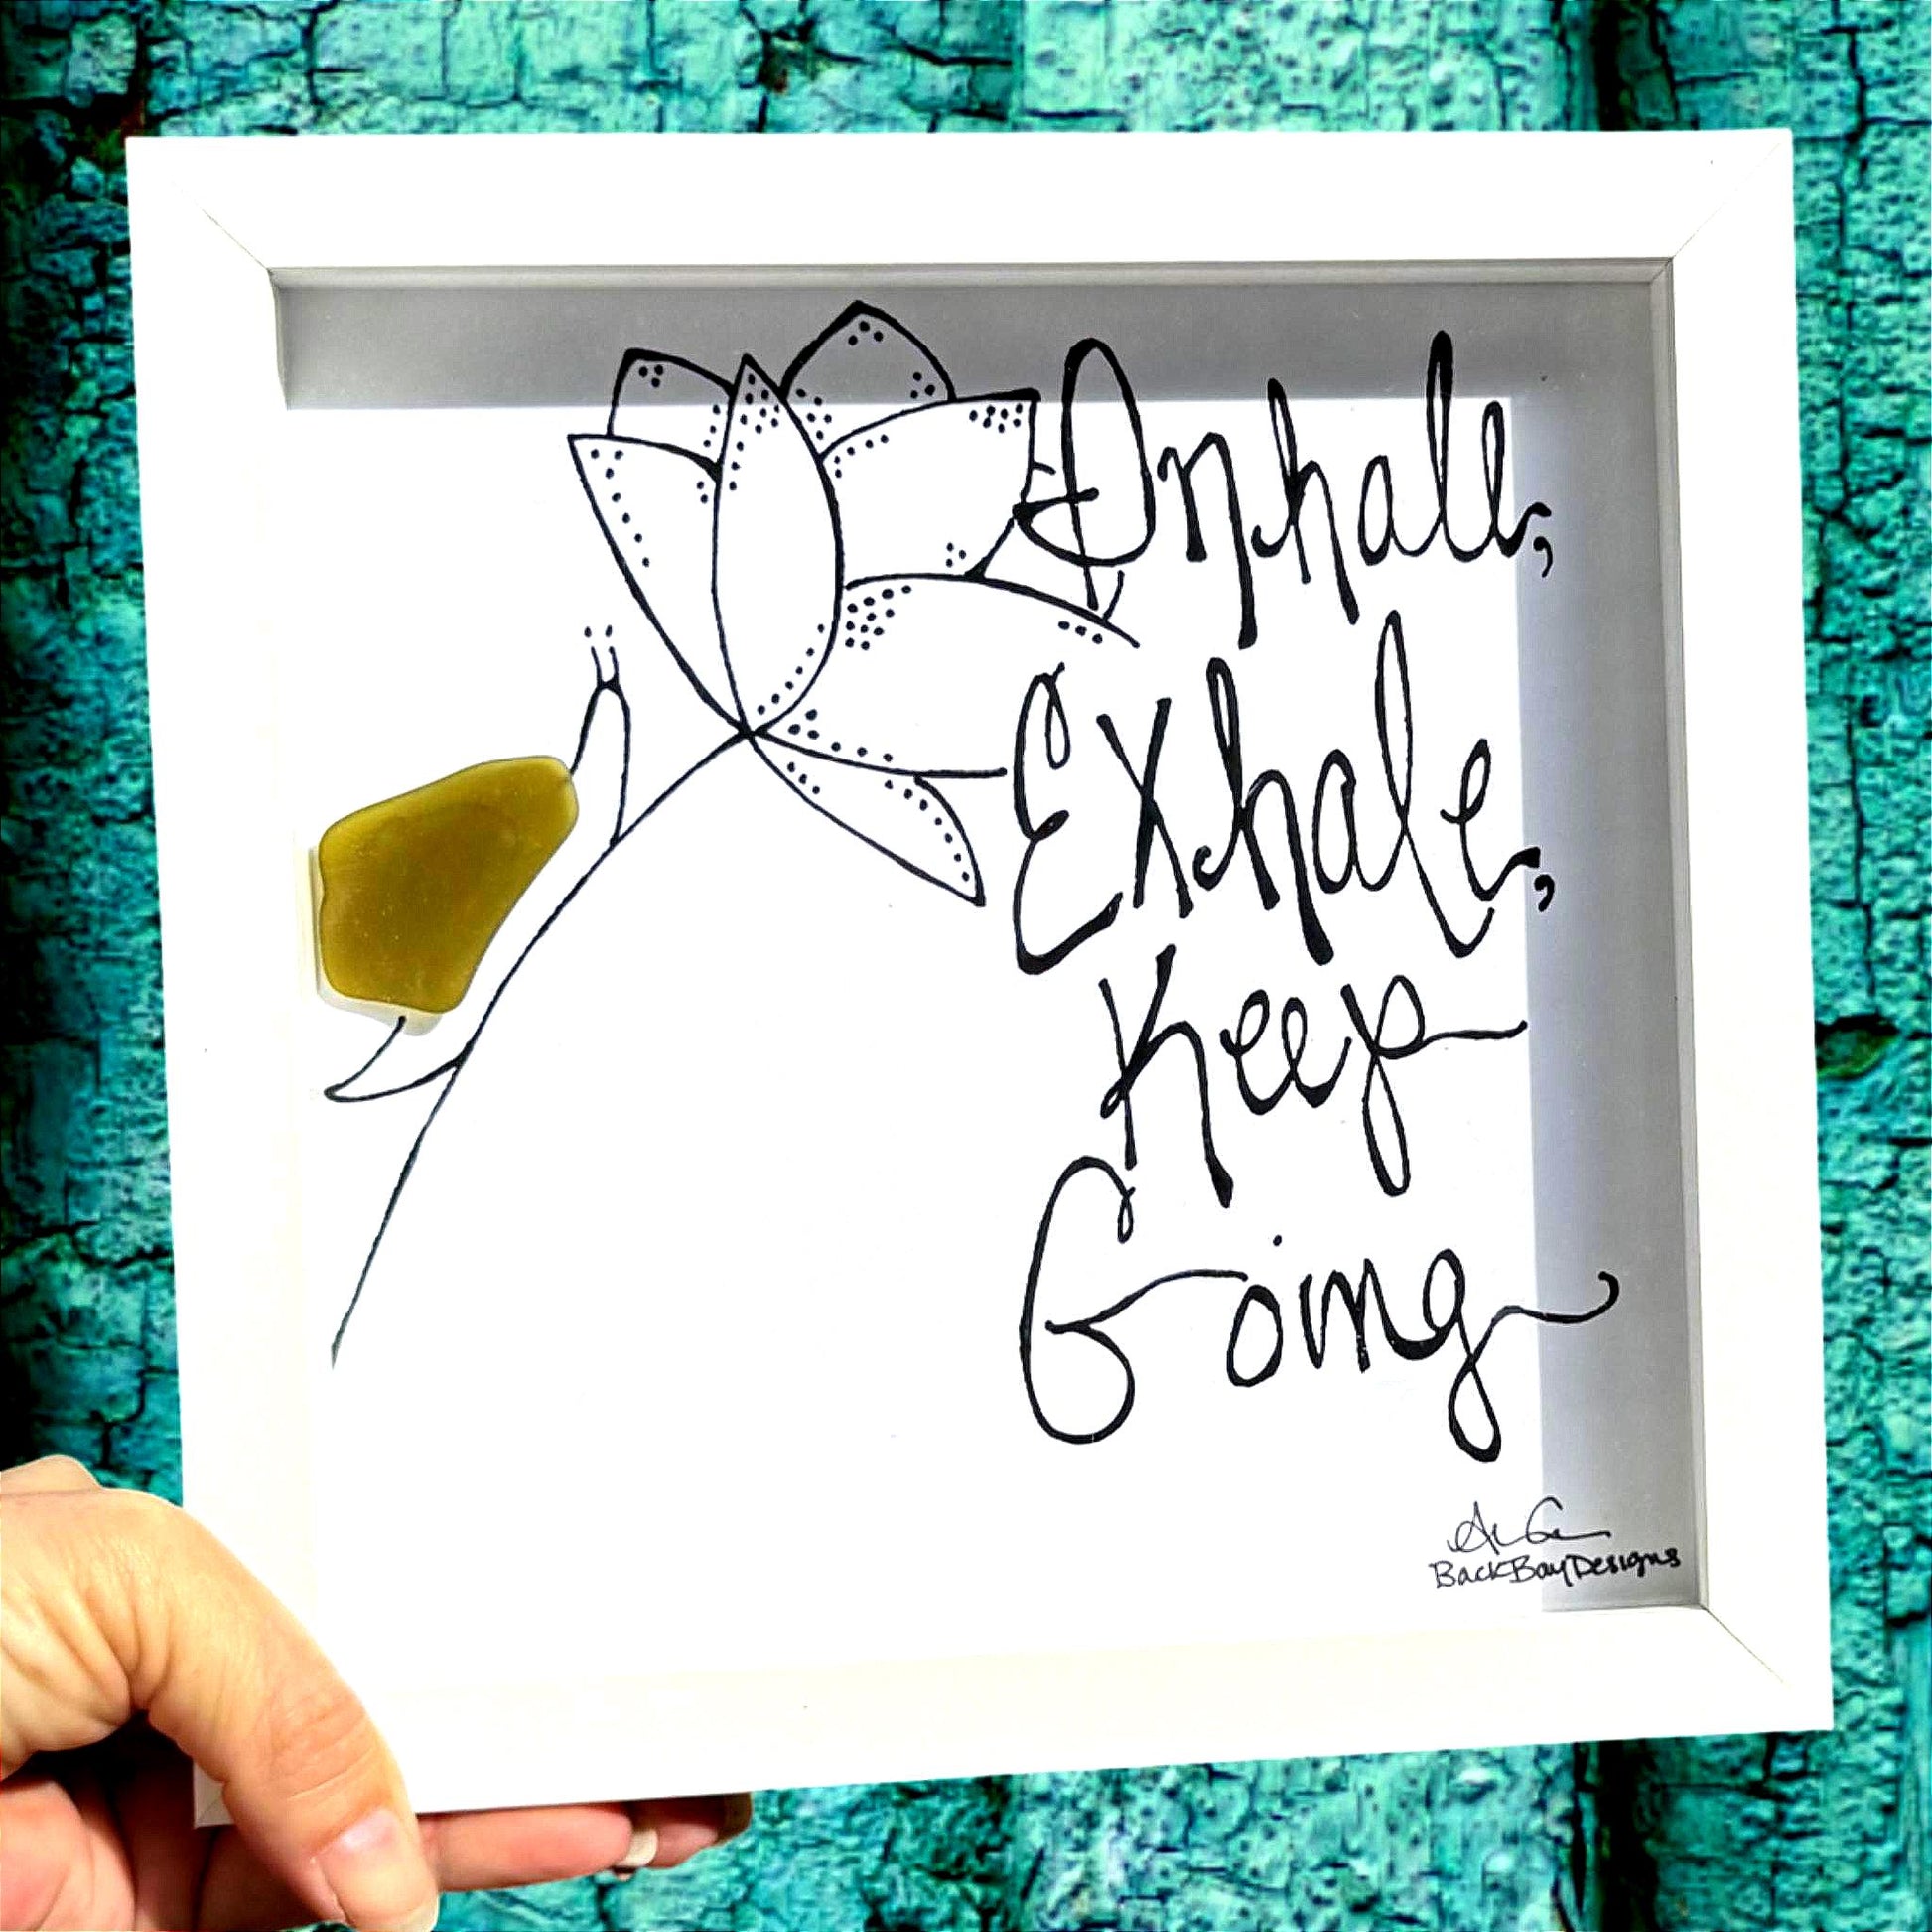 Inhale,
Exhale,
Keep
Going
BackBayDesigns